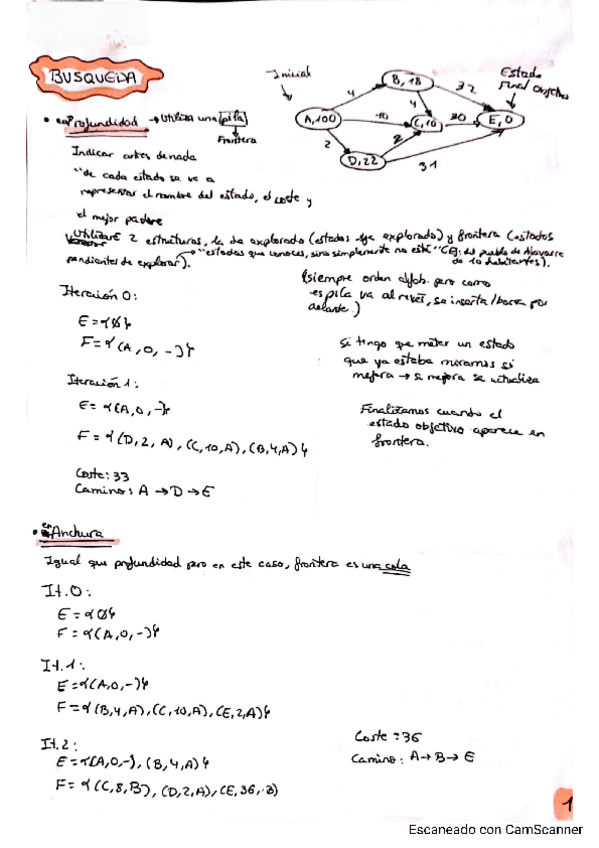 BUSQUEDA
Inicial
B, 18
4
32
Estado
Final Objetivo
A,100
10
4
C,10
20
E,0
2
2
D,22
31
• en Profundidad → Utiliza una pila
Frontera
Indicar antes de nada
"de cada estado se va a
representar el nombre del estado, el coste y
el mejor padre
Utilizaré 2 estructuras, la de explorado (estados ya explorado) y frontera (estados
pendientes de explorar).
"estados que conoces, sino simplemente no esté" (Ej: del pueblo de Navarre
de 10 habitantes).
(siempre orden alfab. pero como
es pila va al revés, se inserta/borra por
delante.)
Iteración 0:
E = {Ø}
F = {(A, 0, -)}
Si tengo que meter un estado
que ya estaba miramos si
mejora → si mejora se actualiza
Iteración 1:
E = {(A,0,-)}
F = {(D,2,A), (C,10,A), (B,4,A)}
Finalizamos cuando el
estado objetivo aparece en
frontera.
Coste: 33
Camino: A → D → E
• en Anchura
Igual que profundidad pero en este caso, frontera es una cola
It.0:
E = {Ø}
F = {(A,0,-)}
It.1:
E = {(A,0,-)}
F = {(B,4,A), (C,10,A), (E,2,A)}
It.2:
E = {(A,0,-), (B,4,A)}
F = {(C,8,B), (D,2,A), (E,36,B)
Coste = 36
Camino: A → B → E
1
Escaneado con CamScanner